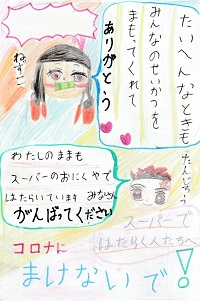 たいへんなときも
みんなのせいかつを
まもってくれて
ありがとう
ねずこ
わたしのままも
スーパーのおにくやで
はたらいています みなさん
がんばってください
たんじろう
スーパーで
はたらく人たちへ
コロナに
まけないで!